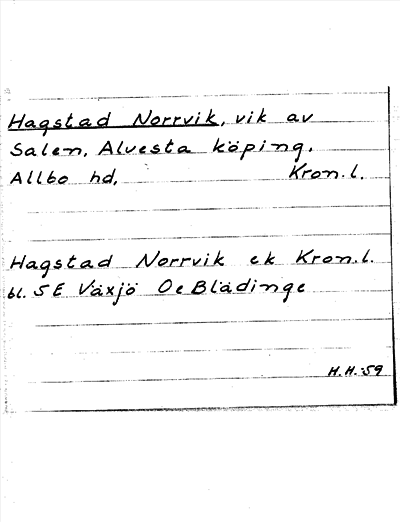 Hagstad Norrvik, vik av
Salen, Alvesta köping,
Allbo hd, Kron.l.
Hagstad Norrvik ek Kron.l.
bl. 5E Växjö Oe Blädinge
H.H.-59